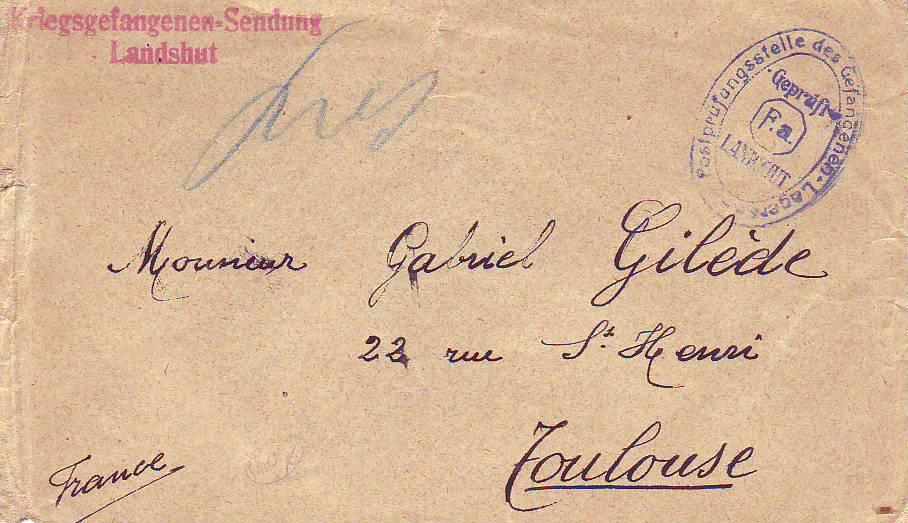 Kriegsgefangenen-Sendung
Landshut
Postprüfungsstelle des Gefangenen-Lagers
Geprüft
F.a.
LANDSHUT
Monsieur Gabriel Gilède
22 rue St. Henri
Toulouse
France